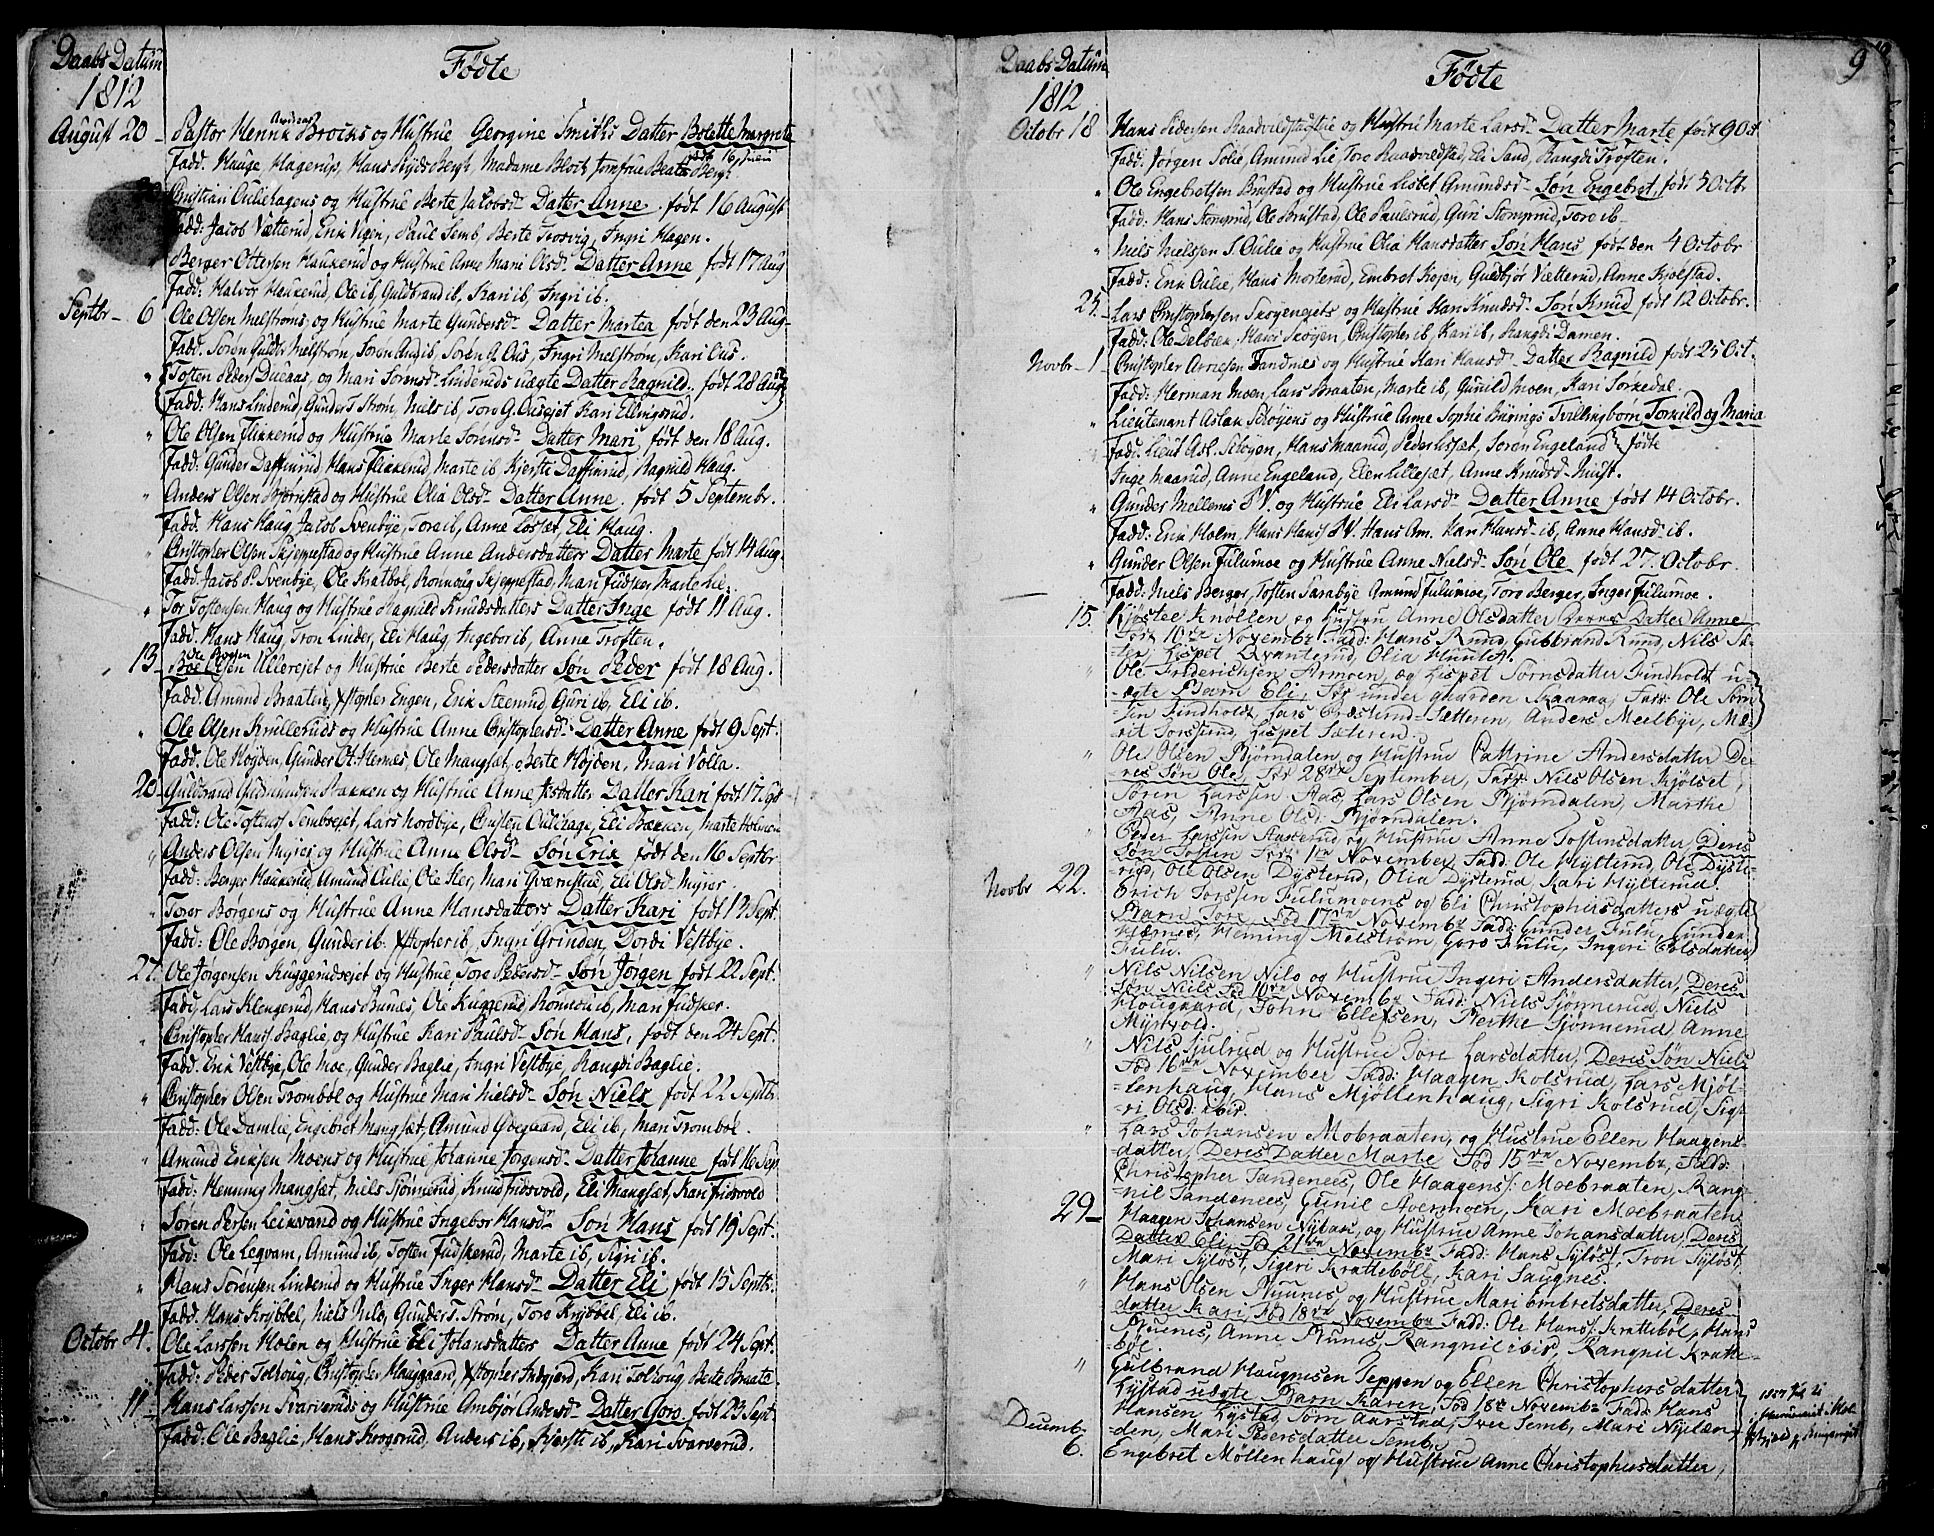 Daabs Datum
Födte
1812
August 20 Pastor Brochs og Hustrue Georgine Smiths Datter Bolette Margrete
Fadd: Hauge, Hagerup, Hans Bergh, Madame Bloch, Jomfrue Beate Bergh
født 16 Juni
Cristian Ouliehagens og Hustrue Berte Jacobsd. Datter Anne født 16 August
Fadd: Jacob Vætterud, Erik Vigen, Paul Semb, Berte Trosvig, Ingri Hagen.
" Berger Ottersen Haukerud og Hustrue Anne Mari Olsd. Datter Anne født 17 Aug
Fadd: Halvor Haukerud, Ole ib, Guldbrand ib, Kari ib, Ingri ib.
Septbr 6 Ole Olsen Melstroms, og Hustrue Marte Gundersd. Datter Martea født den 23 Aug
Fadd: Soren Melstrøm, Soren ib, Sorén G. Ous, Ingri Melstrøm, Kari Ous.
" Tosten Peders Ducaas, og Mari Sörensd. Linderuds uægte Datter Ragnild født 28 Aug
Fadd: Hans Linderud, Gunder T. Strøm, Niels ib, Toro G. Ousejet Kari Ellingsrud.
" Ole Olsen Flikkerud og Hustrue Marte Sørensd. Datter Mari født den 18 Aug.
Fadd: Gunder Daffinrud, Hans Flikkerud, Marte ib, Kjersti Daffinrud, Ragnild Haug.
" Anders Olsen Bjørnstad og Hustrue Olia Olsd. Datter Anne født 5 Septembr.
Fadd: Hans Haug, Jacob Svenbye, Tora ib, Anne Løset, Eli Haug.
" Cristopher Olsen Skjeppestad og Hustrue Anne Andersdatters Datter Marte født 14 Aug.
Fadd: Jacob P. Svenbye, Ole Kratbøl, Rønnoug Skjeppestad, Mari Fudsker Marte Lie.
" Tor Tostensen Haug og Hustrue Ragnild Knudsdatters Datter Inge født 11 Aug.
Fadd. Hans Haug, Tron Linder, Eli Haug, Ingebor ib, Anne Trosten.
13 Boe Olsen Ullerejet og Hustrue Berte Pedersdatter Søn Peder født 18 Aug.
Fadd. Amund Braaten, Xstopher Engen, Erik Steenrud, Guri ib, Eli ib.
" Ole Olsen Krulleruds og Hustrue Anne Cristophersd. Datter Anne født 9 Sept.
Fadd. Ole Højden, Gunder Ot. Hernæs, Ole Mangsæt, Berte Højden, Mari Volla.
20 Guldbrand Gudmundsen Bakken og Hustrue Anne Datter Kari født 17 Sept
Fadd: Ole Tostens Sembsejet, Lars Nordbye, Cristen Oulihage, Eli Bakken, Marte Holmen
" Anders Olsen Myrer og Hustrue Anne Olsd. Søn Erik født den 16 Septbr
Fadd: Berger Haukerud, Amund Oulie, Ole Sler, Mari Qværnstue, Eli Olsd Myrer.
" Torer Børgens og Hustrue Anne Hansdatters Datter Kari født 12 Sept.
Fadd: Ole Børgen, Gunder ib, Xstopher ib, Ingri Grinden, Dordi Vestbye.
27. Ole Jørgensen Kuggerudsejet og Hustrue Tore Pedersd. Søn Jørgen født 22 Sept.
Fadd, Lars Klengerud, Hans Bunæs, Ole Kuggerud, Rønnou ib, Mari Fudsker.
" Cristopher Hans Baglie, og Hustrue Kari Paulsd. Søn Hans, født den 24 Sept.
Fadd. Erik Vestbye, Ole Moe, Gunder Baglie, Ingri Vestbye, Rangdi Baglie.
" Cristopher Olsen Trombøl og Hustrue Mari Nielsd. Søn Niels født 22 Septb.
Fadd: Ole Damlie, Engebret Mangsæt, Amund Ødegaard, Eli ib, Mari Trombøl.
" Amund Eriksen Moens og Hustrue Johanne Jørgensd. Datter Johanne født 16 Sep.
Fadd: Henning Mangsæt, Niels Sjønnerud, Knud Fridsvold, Eli Mangsæt, Kari Fridsvold
" Søren Persen Leikvand og Hustrue Ingebor Hansd. Søn Hans født 19 Sept.
Fadd: Ole Leqvam, Amund ib, Tosten Fudskerud, Marte ib, Sigri ib.
" Hans Sørensen Linderud og Hustrue Inger Hansd. Datter Eli født 15 Septb.
Fadd. Hans Krybbel, Niels Nilo, Gunder T. Strøm, Tore Krybbel, Eli ib.
Octobr 4. Ole Larssen Holen og Hustrue Eli Johansdatters Datter Anne født 24 Sept.
Fadd: Peder Tolhoug, Cristopher Hauggaard, Xstopher Indgjerd, Kari Tolhoug, Berte Braate.
11 Hans Larssen Svarveruds og Hustrue Ambjør Andersd. Datter Goro født 23 Sept.
Fadd: Ole Baglie, Hans Krogsrud, Anders ib, Kjersti ib, Kari Svarverud.
Daabs Datum
Födte
9
1812
Octobr 18 Hans Pedersen Raadvildstadstue og Hustrue Marte Larsd. Datter Marte født 9 Oct.
Fadd: Jørgen Solie, Amund Lie, Tore Raadvildstad, Eli Sand, Rangdi Trosten.
" Ole Engebretsen Brustad og Hustrue Lisbet Amundsd. Søn Engebret født 5 Octbr
Fadd: Hans Stomprud, Ole Brustad, Ole Paulsrud, Guri Stomprud, Tore ib.
" Niels Nielssen S. Oulie og Hustrue Olia Hansdatter Søn Hans født den 4 Octobr
Fadd: Erik Oulie, Hans Morterud, Embret Kojen, Guldbjør Vætterud, Anne Kjolstad.
25. Lars Cristophersen Skoyensejets og Hustrue Kari Knudsd. Søn Knud født 12 Octobr.
Fadd: Ole Delbæk, Hans Skøyen, Cristopher ib, Kari ib, Rangdi Damen.
Novbr 1 Cristopher Arnesen Tandnæs og Hustrue Kari Hansd. Datter Ragnild født 25 Oct.
Fadd: Herman Moen, Lars Braaten, Marte ib, Gunild Moen, Kari Sorkedal.
" Lieutenant Aslak Schøyens og Hustrue Anne Sophie Tvillingbørn, Torkild og Maria
Fadd: Lieut Asl. Schøyen, Hans Maarud, Peder Lisæt, Soren Engeland født
Inge Maarud, Anne Engeland, Elen Lillesæt, Anne Knudsd.
" Gunder Mellems S.V. og Hustrue Eli Larsd. Datter Anne født 14 Octobr.
Fadd: Erik Holm, Hans Hans S.V. Hans Om. Kari Hansd. ib, Anne Hansd. ib.
" Gunder Olsen Fulumoe og Hustrue Anne Nielsd. Søn Ole født 27. Octobr.
Fadd: Niels Berger, Tosten Sarabye, Amund Fulumoe, Toro Berger, Inger Fulumoe.
15. Kjøstel Knollen og Hustru Anne Olsdatter Deres Datter Anne
Född 10de Novembr Fadd: Hans Rund, Gubbrand Rund, Nils
Lispet Qvanterud, Olia Huuset.
" Ole Friderichsen Armoen, og Lispet Sørnsdatter Lindholt u-
-ægte Barn Eli, Fød under gaarden Kaaraa, Fadd: Ole Sörn
-sen Lindholt, Lars Græsrud-Sætteren, Anders Meelbye, Mæ-
rit Torsrud, Lispet Sæteren.
" Ole Olsen Bjørndalen, og Hustrue Cattrine Andersdatter De-
res Søn Ole, Fød 28de September, Fadd: Nils Olsen Kjølset,
Sören Larssen Aas, Lars Olsen Bjørndalen, Marthe
Aas, Anne Olsd: Bjørndalen.
" Peder Larssen Aasterud og Hustrue Anne Tostensdatter, Deris
Søn Tosten Fød 1de November Fadd: Ole Hytterud, Ole Dyste-
rud, Ole Olsen Dysterud, Olia Dysterud, Kari Hytterud.
Novbr 22. Erich Torssen Fulumoens og Eli Christophersdatters uægte
Barn Tore, Fød 17de Novembr Fadd: Gunder Fulu, Gunder
Hærnes, Heming Melström, Goro Fulu, Ingeri Olsdatter
Fulu.
" Nils Nilsen Nilo og Hustrue Ingeri Andersdatter, Deres
Søn Niels Fød 10de Novembr Fadd: Niels Sjønnerud, Niels
Hougaard, John Ellefsen, Berthe Sjønnerud Anne
Myrvold.
" Nils Sjulrud og Hustrue Tore Larsdatter, Deres Søn Niels
Fød 16de November Fadd: Haagen Kolsrud, Lars Mjöl-
-lenhaug, Hans Mjöllenhaug, Sigri Kolsrud, Sig-
-ri Olsd: ibid.
" Lars Johansen Mobraaten, og Hustrue Ellen Haagens-
-datter, Deres Datter Marte Fød 15de Novembr, Fadd:
Christopher Tandenees, Ole Haagens: Moebraaten, Rang-
-nil Tandenees, Gunil Avermoen, Kari Moebraaten
29 Haagen Johansen Nybac, og Hustrue Anne Johansdatter, Deres
Datter Eli, Fød 21de Novembr Fadd: Hans Syløst, Tron Syløst,
Mari Syløst, Sigeri Krattebøll, Kari Saugnes.
" Hans Olsen Buunes, og Hustrue Mari Embretsdatter, Deres
datter Kari, Fød 18de Novembr Fadd: Ole Hans: Krattebøl, Hans
Buenes, Anne Bunes, Rangnil ibid, Rangnil Kratte-
bøl.
" Gulbrand Haugnesen Teppen og Ellen Christophersdatter
Lystad uægte Barn Karen, Fød 18de Novembr Fadd: Hans
Hansen, Lystad, Sørn Aarstad, Iver Semb, Mari Nylæn-
-den, Mari Pedersdatter Semb,
Decemb 6. Engebret Møllenhaug og Hustrue Anne Christophersdatter,